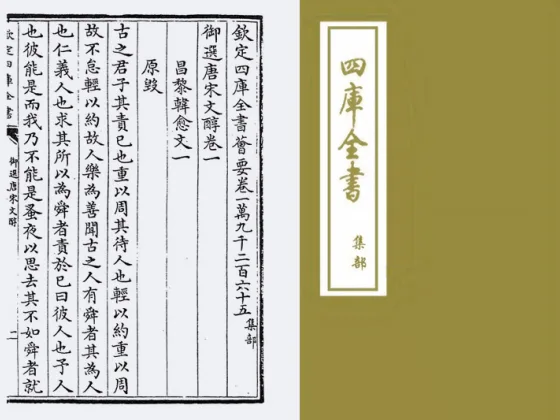 欽定四庫全書薈要卷一萬九千二百六十五集部
御選唐宋文醇卷一
昌黎韓愈文一
原毀
古之君子其責已也重以周其待人也輕以約重以周
故不怠輕以約故人樂為善聞古之人有舜者其為人
也仁義人也求其所以為舜者責於已曰彼人也予人
也彼能是而我乃不能是蚤夜以思去其不如舜者就
欽定四庫全書
御選唐宋文醇
四庫全書
集部